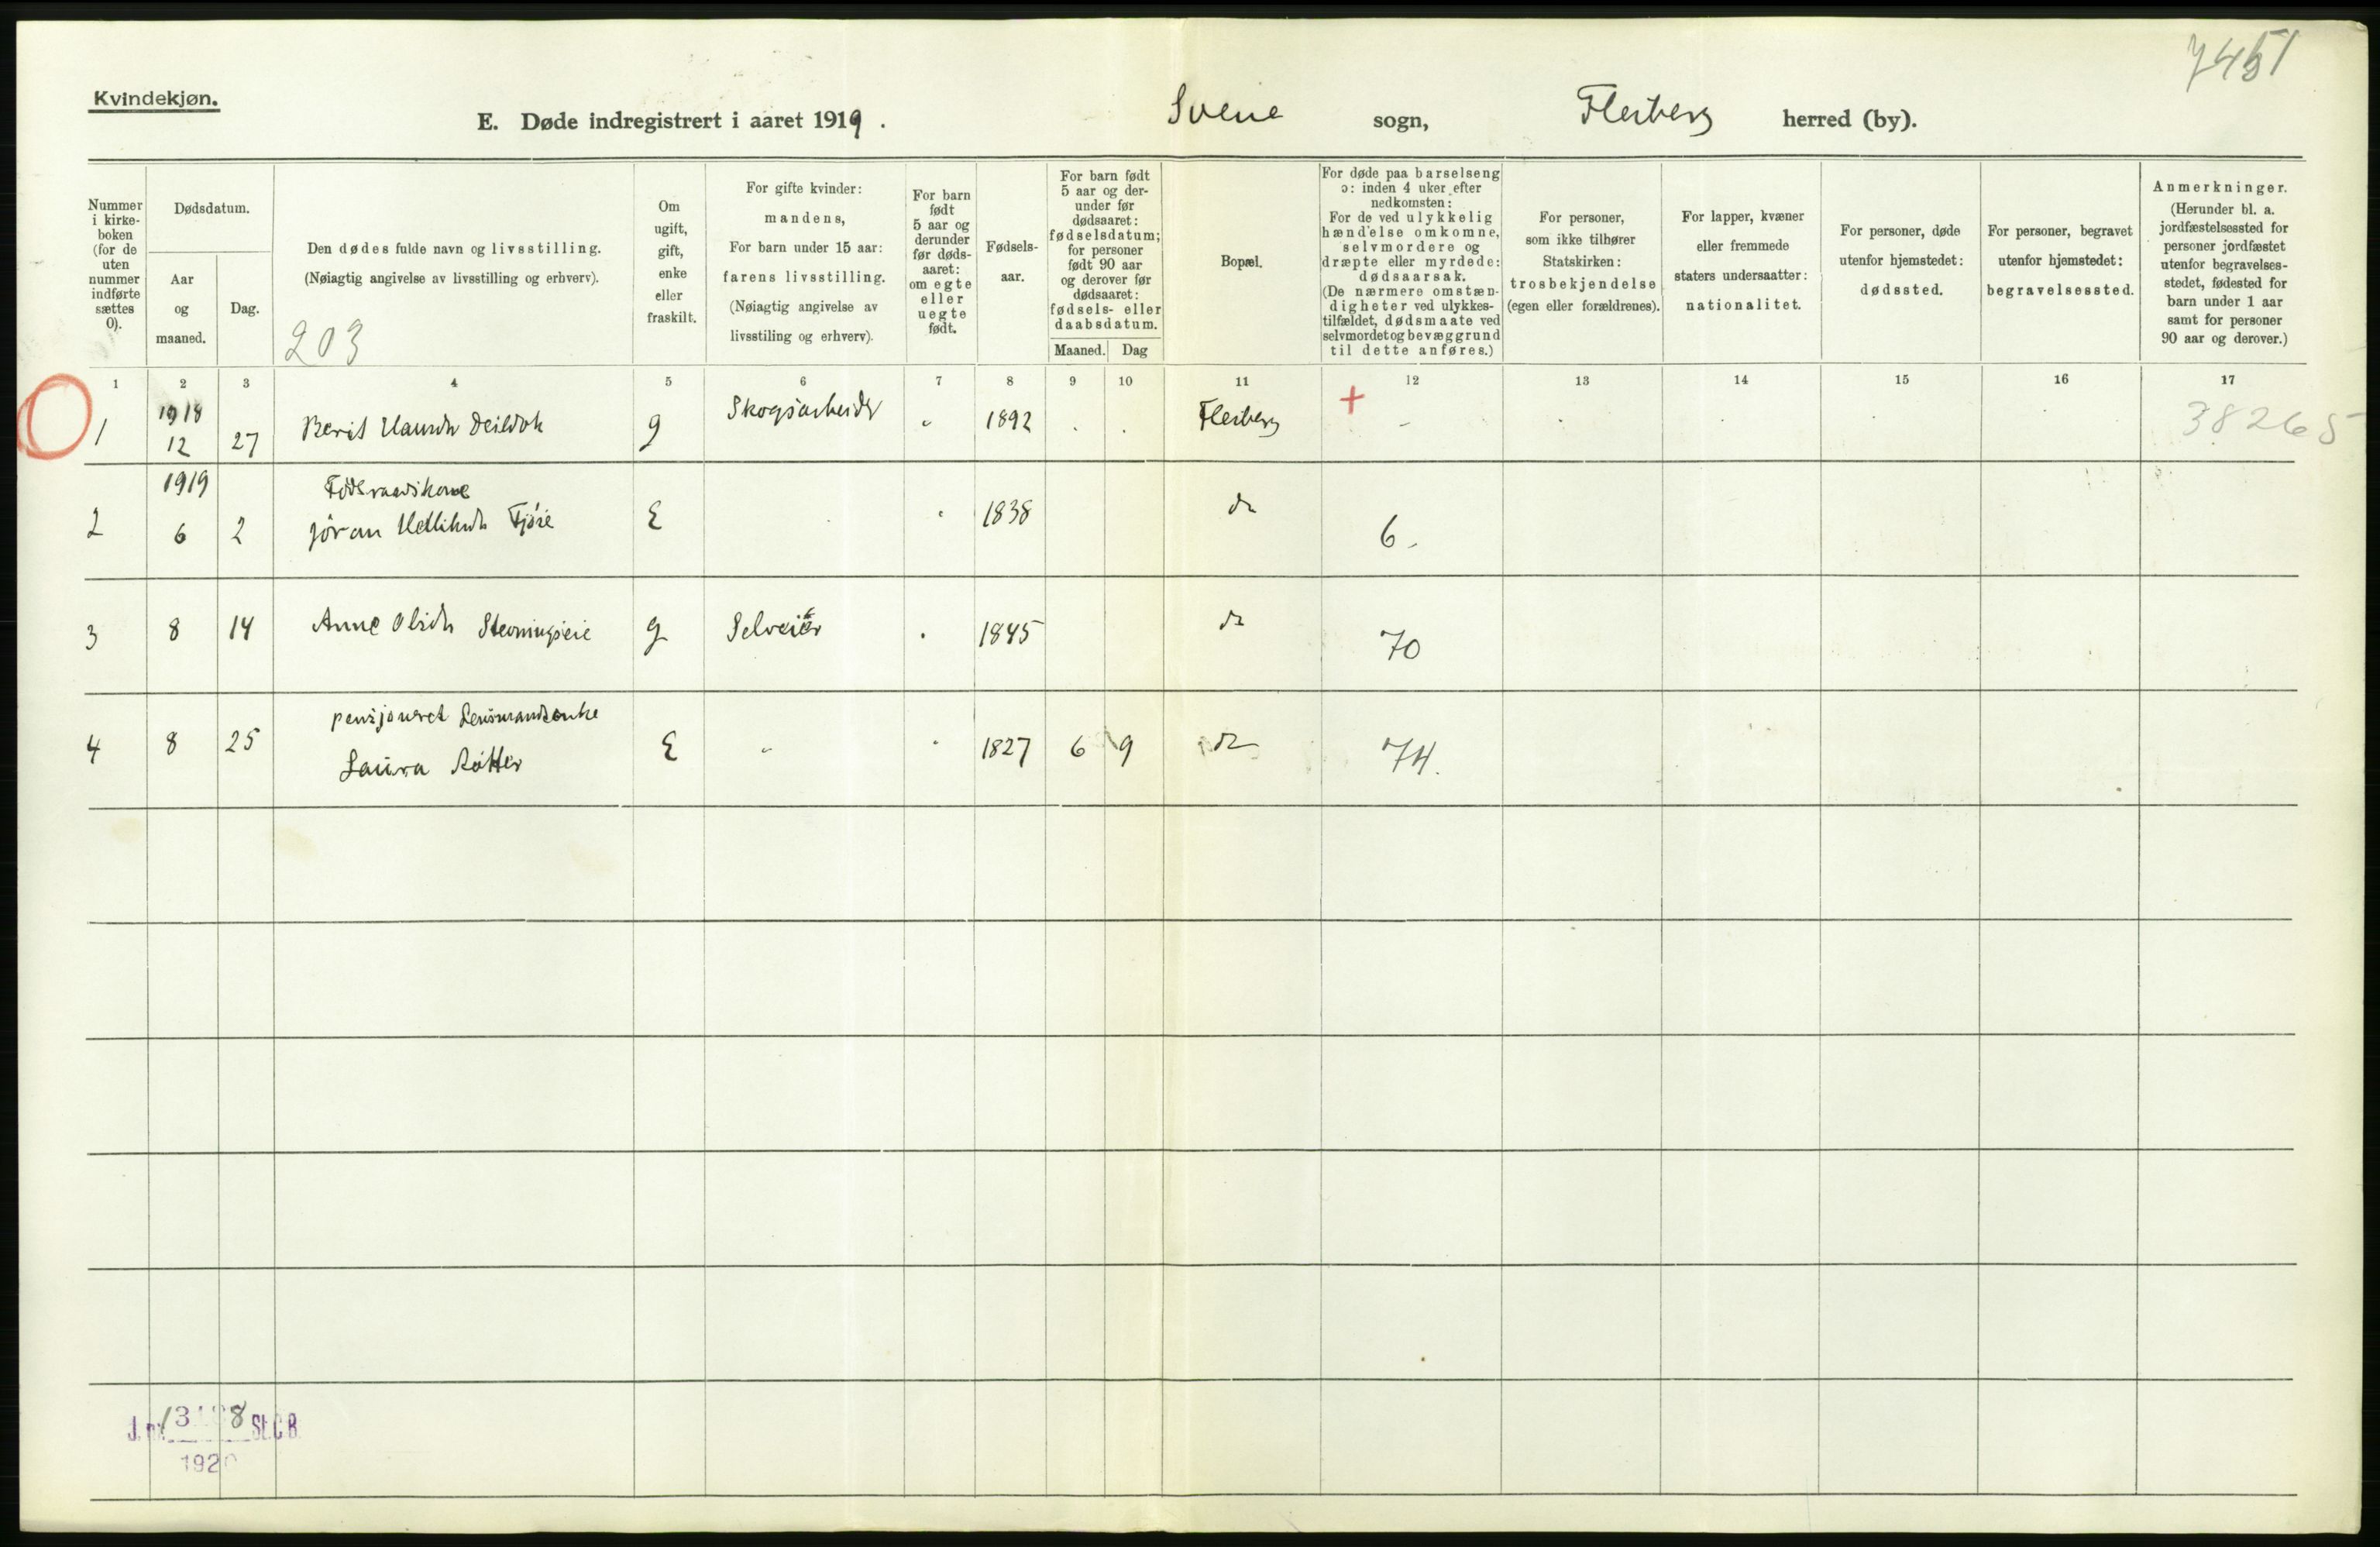 7451
Kvindekjøn.
E. Døde indregistrert i aaret 1919. Svene sogn, Flesberg herred (by).
Nummer i kirke-boken (for de uten nummer indførte sættes 0).
Dødsdatum.
Aar og maaned.
Dag.
Den dødes fulde navn og livsstilling.
(Nøiagtig angivelse av livsstilling og erhverv).
203
Om ugift, gift, enke eller fraskilt.
For gifte kvinder:
mandens,
For barn under 15 aar:
farens livsstilling.
(Nøiagtig angivelse av
livsstiling og erhverv).
For barn født 5 aar og derunder før døds-aaret: om egte eller uegte født.
Fødsels-aar.
For barn født
5 aar og der-
under før
dødsaaret:
fødselsdatum;
for personer
født 90 aar
og derover før
dødsaaret:
fødsels- eller
daabsdatum.
Maaned. Dag
Bopæl.
For døde paa barselseng
ɔ: inden 4 uker efter
nedkomsten:
For de ved ulykkelig
hændelse omkomne,
selvmordere og
dræpte eller myrdede:
dødsaarsak.
(De nærmere omstæn-
digheter ved ulykkes-
tilfældet, dødsmaate ved
selvmordet og bevæggrund
til dette anføres.)
For personer,
som ikke tilhører
Statskirken:
trosbekjendelse
(egen eller forældrenes).
For lapper, kvæner
eller fremmede
staters undersaatter:
nationalitet.
For personer, døde
utenfor hjemstedet:
dødssted.
For personer, begravet
utenfor hjemstedet:
begravelsessted.
Anmerkninger.
(Herunder bl. a.
jordfæstelsessted for
personer jordfæstet
utenfor begravelses-
stedet, fødested for
barn under 1 aar
samt for personer
90 aar og derover.)
1 2 3 4 5 6 7 8 9 10 11 12 13 14 15 16 17
1918
1 12 27 Berit g Skogsarbeider " 1892 . . Flesberg + - . . . . 38265
1919
Føderaadskone
2 6 2 Jöran E " 1838 do 6.
3 8 14 Anne Olsdr Stevningseie g Selveier . 1845 do 70
pensjoneret Lensmandsenke
4 8 25 Laura E " " 1827 6 9 do 74.
J. nr. St. C B.
1920